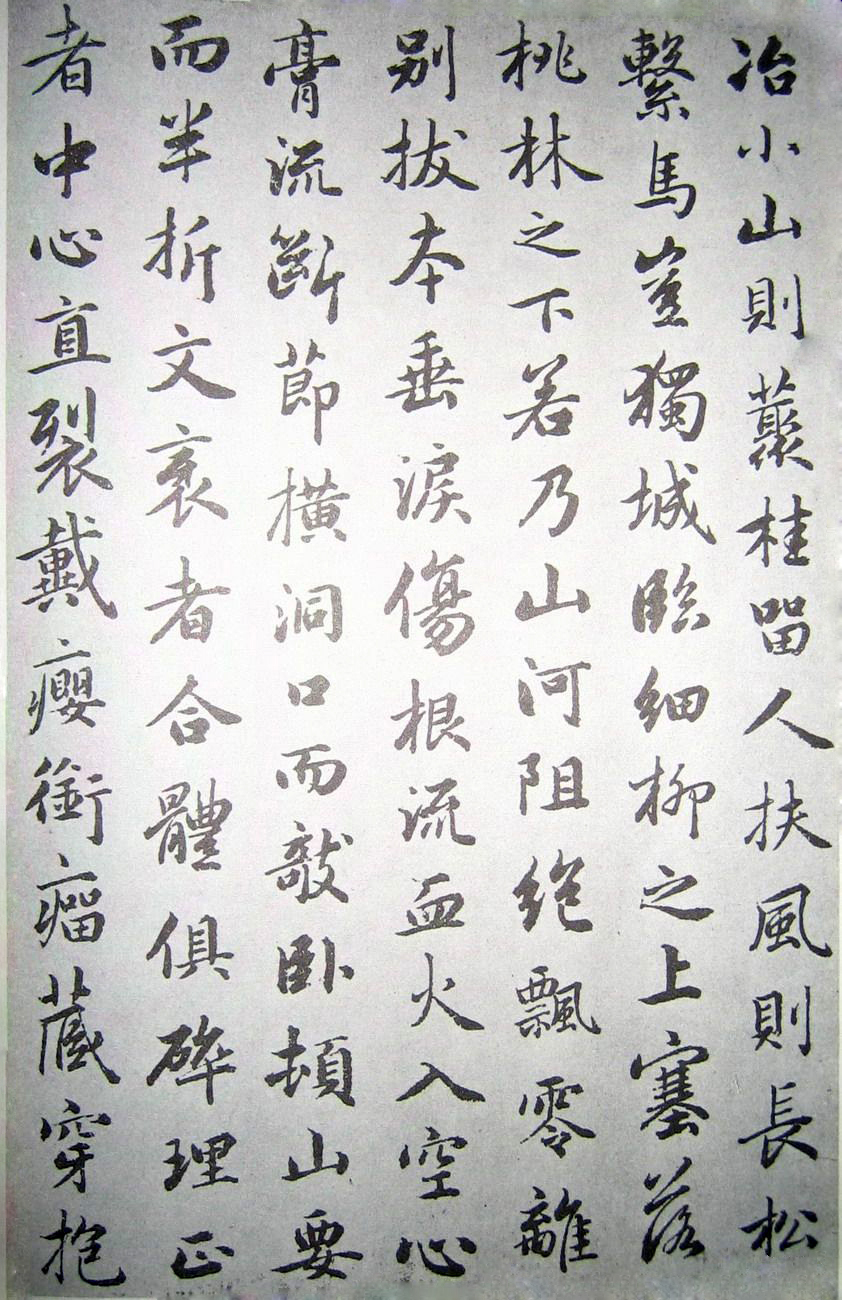 冶小山則藂桂留人扶風則長松
繫馬豈獨城臨細柳之上塞落
桃林之下若乃山河阻絕飄零離
別拔本垂淚傷根流血火入空心
膏流斷節橫洞口而敧卧頓山要
而半折文衺者合體俱碎理正
者中心直裂戴癭銜瘤藏穿抱